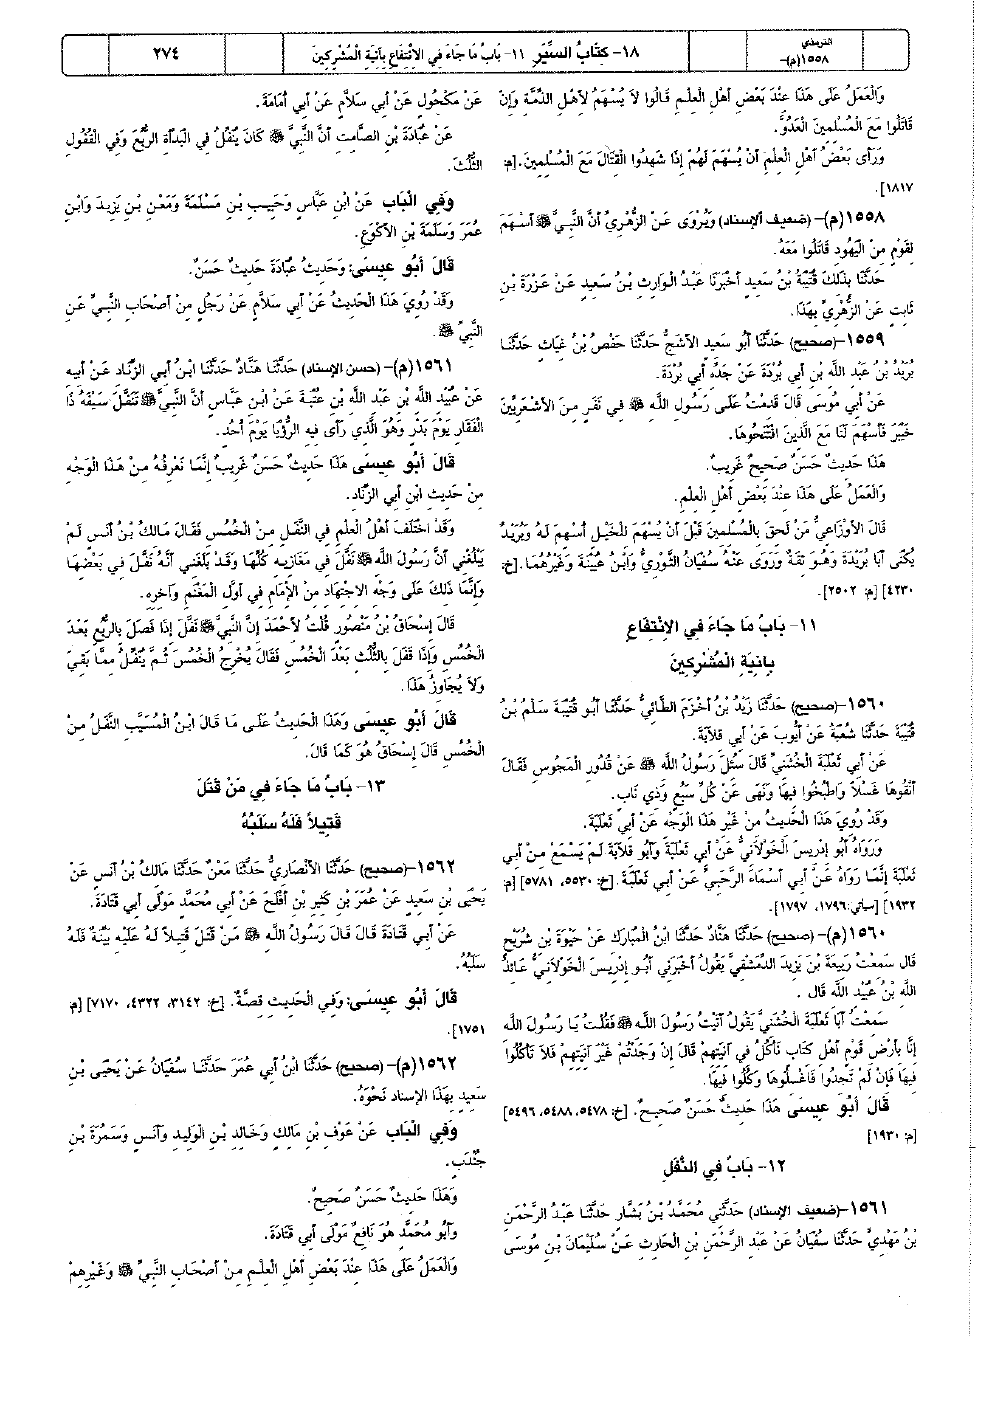 الترمذي
١٥٥٨(م)-
١٨- كِتَابُ السِّيَرِ ١١- بَابُ مَا جَاءَ فِي الِانْتِفَاعِ بِآنِيَةِ الْمُشْرِكِينَ
٢٧٤
وَالْعَمَلُ عَلَى هَذَا عِنْدَ بَعْضِ أَهْلِ الْعِلْمِ قَالُوا لَا يُسْهَمُ لِأَهْلِ الذِّمَّةِ وَإِنْ
قَاتَلُوا مَعَ الْمُسْلِمِينَ الْعَدُوَّ.
وَرَأَى بَعْضُ أَهْلِ الْعِلْمِ أَنْ يُسْهَمَ لَهُمْ إِذَا شَهِدُوا الْقِتَالَ مَعَ الْمُسْلِمِينَ.[م:
١٨١٧].
١٥٥٨(م)-(ضعيف الإسناد) وَيُرْوَى عَنِ الزُّهْرِيِّ أَنَّ النَّبِيَّ ﷺ أَسْهَمَ
لِقَوْمٍ مِنَ الْيَهُودِ قَاتَلُوا مَعَهُ.
حَدَّثَنَا بِذَلِكَ قُتَيْبَةُ بْنُ سَعِيدٍ أَخْبَرَنَا عَبْدُ الْوَارِثِ بْنُ سَعِيدٍ عَنْ عَزْرَةَ بْنِ
ثَابِتٍ عَنِ الزُّهْرِيِّ بِهَذَا.
١٥٥٩-(صحيح) حَدَّثَنَا أَبُو سَعِيدٍ الْأَشَجُّ حَدَّثَنَا حَفْصُ بْنُ غِيَاثٍ حَدَّثَنَا
بُرَيْدُ بْنُ عَبْدِ اللَّهِ بْنِ أَبِي بُرْدَةَ عَنْ جَدِّهِ أَبِي بُرْدَةَ.
عَنْ أَبِي مُوسَى قَالَ قَدِمْتُ عَلَى رَسُولِ اللَّهِ ﷺ فِي نَفَرٍ مِنَ الْأَشْعَرِيِّينَ
خَيْبَرَ فَأَسْهَمَ لَنَا مَعَ الَّذِينَ افْتَتَحُوهَا.
هَذَا حَدِيثٌ حَسَنٌ صَحِيحٌ غَرِيبٌ.
وَالْعَمَلُ عَلَى هَذَا عِنْدَ بَعْضِ أَهْلِ الْعِلْمِ.
قَالَ الْأَوْزَاعِيُّ مَنْ لَحِقَ بِالْمُسْلِمِينَ قَبْلَ أَنْ يُسْهَمَ لِلْخَيْلِ أُسْهِمَ لَهُ وَبُرَيْدٌ
يُكْنَى أَبَا بُرَيْدَةَ وَهُوَ ثِقَةٌ وَرَوَى عَنْهُ سُفْيَانُ الثَّوْرِيُّ وَابْنُ عُيَيْنَةَ وَغَيْرُهُمَا.[خ:
٤٢٣٠] [م: ٢٥٠٢].
١١- بَابُ مَا جَاءَ فِي الِانْتِفَاعِ
بِآنِيَةِ الْمُشْرِكِينَ
١٥٦٠-(صحيح) حَدَّثَنَا زَيْدُ بْنُ أَخْزَمَ الطَّائِيُّ حَدَّثَنَا أَبُو قُتَيْبَةَ سَلْمُ بْنُ
قُتَيْبَةَ حَدَّثَنَا شُعْبَةُ عَنْ أَيُّوبَ عَنْ أَبِي قِلَابَةَ.
عَنْ أَبِي ثَعْلَبَةَ الْخُشَنِيِّ قَالَ سُئِلَ رَسُولُ اللَّهِ ﷺ عَنْ قُدُورِ الْمَجُوسِ فَقَالَ
أَنْقُوهَا غَسْلًا وَاطْبُخُوا فِيهَا وَنَهَى عَنْ كُلِّ سَبُعٍ وَذِي نَابٍ.
وَقَدْ رُوِيَ هَذَا الْحَدِيثُ مِنْ غَيْرِ هَذَا الْوَجْهِ عَنْ أَبِي ثَعْلَبَةَ.
وَرَوَاهُ أَبُو إِدْرِيسَ الْخَوْلَانِيُّ عَنْ أَبِي ثَعْلَبَةَ وَأَبُو قِلَابَةَ لَمْ يَسْمَعْ مِنْ أَبِي
ثَعْلَبَةَ إِنَّمَا رَوَاهُ عَنْ أَبِي أَسْمَاءَ الرَّحَبِيِّ عَنْ أَبِي ثَعْلَبَةَ. [خ: ٥٥٣٠، ٥٧٨١] [م:
١٩٣٢] [سيأتي: ١٧٩٦، ١٧٩٧].
١٥٦٠(م)-(صحيح) حَدَّثَنَا هَنَّادٌ حَدَّثَنَا ابْنُ الْمُبَارَكِ عَنْ حَيْوَةَ بْنِ شُرَيْحٍ
قَالَ سَمِعْتُ رَبِيعَةَ بْنَ يَزِيدَ الدِّمَشْقِيَّ يَقُولُ أَخْبَرَنِي أَبُو إِدْرِيسَ الْخَوْلَانِيُّ عَائِذُ
اللَّهِ بْنُ عُبَيْدِ اللَّهِ قَالَ .
سَمِعْتُ أَبَا ثَعْلَبَةَ الْخُشَنِيَّ يَقُولُ أَتَيْتُ رَسُولَ اللَّهِ ﷺ فَقُلْتُ يَا رَسُولَ اللَّهِ
إِنَّا بِأَرْضِ قَوْمٍ أَهْلِ كِتَابٍ نَأْكُلُ فِي آنِيَتِهِمْ قَالَ إِنْ وَجَدْتُمْ غَيْرَ آنِيَتِهِمْ فَلَا تَأْكُلُوا
فِيهَا فَإِنْ لَمْ تَجِدُوا فَاغْسِلُوهَا وَكُلُوا فِيهَا.
قَالَ أَبُو عِيسَى هَذَا حَدِيثٌ حَسَنٌ صَحِيحٌ. [خ: ٥٤٧٨، ٥٤٨٨، ٥٤٩٦]
[م: ١٩٣٠]
١٢- بَابٌ فِي النَّفَلِ
١٥٦١-(ضعيف الإسناد) حَدَّثَنِي مُحَمَّدُ بْنُ بَشَّارٍ حَدَّثَنَا عَبْدُ الرَّحْمَنِ
بْنُ مَهْدِيٍّ حَدَّثَنَا سُفْيَانُ عَنْ عَبْدِ الرَّحْمَنِ بْنِ الْحَارِثِ عَنْ سُلَيْمَانَ بْنِ مُوسَى
عَنْ مَكْحُولٍ عَنْ أَبِي سَلَّامٍ عَنْ أَبِي أُمَامَةَ.
عَنْ عُبَادَةَ بْنِ الصَّامِتِ أَنَّ النَّبِيَّ ﷺ كَانَ يُنَفِّلُ فِي الْبَدْأَةِ الرُّبُعَ وَفِي الْقُفُولِ
الثُّلُثَ.
وَفِي الْبَابِ عَنِ ابْنِ عَبَّاسٍ وَحَبِيبِ بْنِ مَسْلَمَةَ وَمَعْنِ بْنِ يَزِيدَ وَابْنِ
عُمَرَ وَسَلَمَةَ بْنِ الْأَكْوَعِ.
قَالَ أَبُو عِيسَى: وَحَدِيثُ عُبَادَةَ حَدِيثٌ حَسَنٌ.
وَقَدْ رُوِيَ هَذَا الْحَدِيثُ عَنْ أَبِي سَلَّامٍ عَنْ رَجُلٍ مِنْ أَصْحَابِ النَّبِيِّ عَنِ
النَّبِيِّ ﷺ.
١٥٦١(م)-(حسن الإسناد) حَدَّثَنَا هَنَّادٌ حَدَّثَنَا ابْنُ أَبِي الزِّنَادِ عَنْ أَبِيهِ
عَنْ عُبَيْدِ اللَّهِ بْنِ عَبْدِ اللَّهِ بْنِ عُتْبَةَ عَنِ ابْنِ عَبَّاسٍ أَنَّ النَّبِيَّ ﷺ تَنَفَّلَ سَيْفَهُ ذَا
الْفَقَارِ يَوْمَ بَدْرٍ وَهُوَ الَّذِي رَأَى فِيهِ الرُّؤْيَا يَوْمَ أُحُدٍ.
قَالَ أَبُو عِيسَى هَذَا حَدِيثٌ حَسَنٌ غَرِيبٌ إِنَّمَا نَعْرِفُهُ مِنْ هَذَا الْوَجْهِ
مِنْ حَدِيثِ ابْنِ أَبِي الزِّنَادِ.
وَقَدِ اخْتَلَفَ أَهْلُ الْعِلْمِ فِي النَّفَلِ مِنَ الْخُمُسِ فَقَالَ مَالِكُ بْنُ أَنَسٍ لَمْ
يَبْلُغْنِي أَنَّ رَسُولَ اللَّهِ ﷺ نَفَّلَ فِي مَغَازِيهِ كُلِّهَا وَقَدْ بَلَغَنِي أَنَّهُ نَفَّلَ فِي بَعْضِهَا
وَإِنَّمَا ذَلِكَ عَلَى وَجْهِ الِاجْتِهَادِ مِنَ الْإِمَامِ فِي أَوَّلِ الْمَغْنَمِ وَآخِرِهِ.
قَالَ إِسْحَاقُ بْنُ مَنْصُورٍ قُلْتُ لِأَحْمَدَ إِنَّ النَّبِيَّ ﷺ نَفَّلَ إِذَا فَصَلَ بِالرُّبُعِ بَعْدَ
الْخُمُسِ وَإِذَا قَفَلَ بِالثُّلُثِ بَعْدَ الْخُمُسِ فَقَالَ يُخْرِجُ الْخُمُسَ ثُمَّ يُنَفِّلُ مِمَّا بَقِيَ
وَلَا يُجَاوِزُ هَذَا.
قَالَ أَبُو عِيسَى وَهَذَا الْحَدِيثُ عَلَى مَا قَالَ ابْنُ الْمُسَيَّبِ النَّفَلُ مِنَ
الْخُمُسِ قَالَ إِسْحَاقُ هُوَ كَمَا قَالَ.
١٣- بَابُ مَا جَاءَ فِي مَنْ قَتَلَ
قَتِيلًا فَلَهُ سَلَبُهُ
١٥٦٢-(صحيح) حَدَّثَنَا الْأَنْصَارِيُّ حَدَّثَنَا مَعْنٌ حَدَّثَنَا مَالِكُ بْنُ أَنَسٍ عَنْ
يَحْيَى بْنِ سَعِيدٍ عَنْ عُمَرَ بْنِ كَثِيرِ بْنِ أَفْلَحَ عَنْ أَبِي مُحَمَّدٍ مَوْلَى أَبِي قَتَادَةَ.
عَنْ أَبِي قَتَادَةَ قَالَ قَالَ رَسُولُ اللَّهِ ﷺ مَنْ قَتَلَ قَتِيلًا لَهُ عَلَيْهِ بَيِّنَةٌ فَلَهُ
سَلَبُهُ.
قَالَ أَبُو عِيسَى: وَفِي الْحَدِيثِ قِصَّةٌ. [خ: ٣١٤٢، ٤٣٢٢، ٧١٧٠] [م:
١٧٥١].
١٥٦٢(م)-(صحيح) حَدَّثَنَا ابْنُ أَبِي عُمَرَ حَدَّثَنَا سُفْيَانُ عَنْ يَحْيَى بْنِ
سَعِيدٍ بِهَذَا الْإِسْنَادِ نَحْوَهُ.
وَفِي الْبَابِ عَنْ عَوْفِ بْنِ مَالِكٍ وَخَالِدِ بْنِ الْوَلِيدِ وَأَنَسٍ وَسَمُرَةَ بْنِ
جُنْدَبٍ.
وَهَذَا حَدِيثٌ حَسَنٌ صَحِيحٌ.
وَأَبُو مُحَمَّدٍ هُوَ نَافِعٌ مَوْلَى أَبِي قَتَادَةَ.
وَالْعَمَلُ عَلَى هَذَا عِنْدَ بَعْضِ أَهْلِ الْعِلْمِ مِنْ أَصْحَابِ النَّبِيِّ ﷺ وَغَيْرِهِمْ